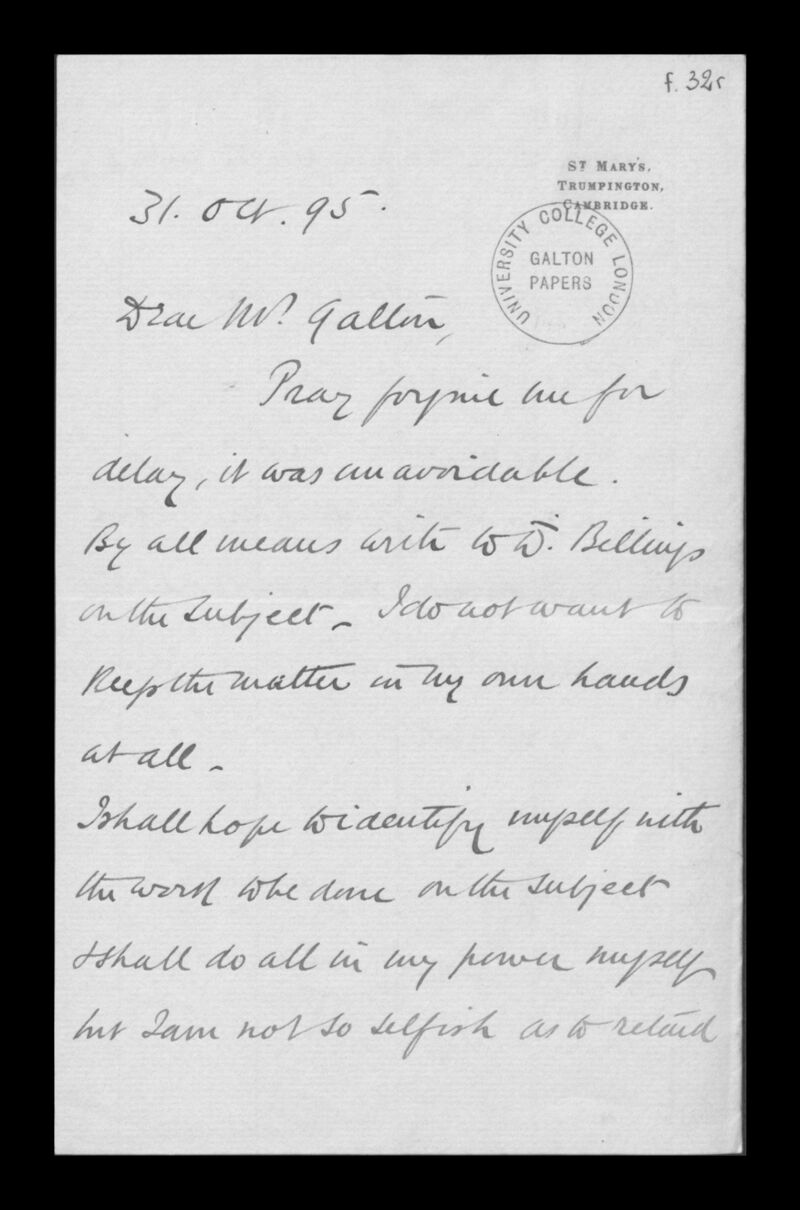 f. 32r
ST MARY'S,
TRUMPINGTON,
CAMBRIDGE.
UNIVERSITY COLLEGE LONDON
GALTON
PAPERS
31. Oct. 95.
Dear Mr. Galton,
Pray forgive me for
delay, it was unavoidable.
By all means write to Dr. Billings
on the subject - I do not want to
keep the matter in my own hands
at all -
I shall hope to identify myself with
the work to be done on the subject
& shall do all in my power myself
but I am not so selfish as to retard